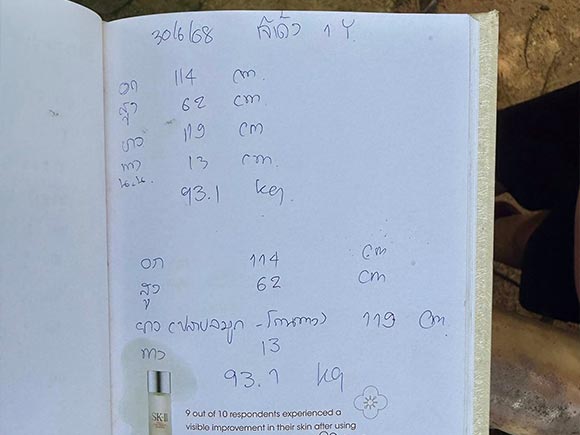 30/6/68 1 Y.
อก 114 cm.
สูง 62 cm.
ยาว 119 cm
หาง 13 cm.
น.น. 93.1 kg.
อก 114 cm
สูง 62 cm
ยาว (ปลายจมูก - โคนหาง) 119 cm.
หาง 13
93.1 kg
SK-II
9 out of 10 respondents experienced a
visible improvement in their skin after using